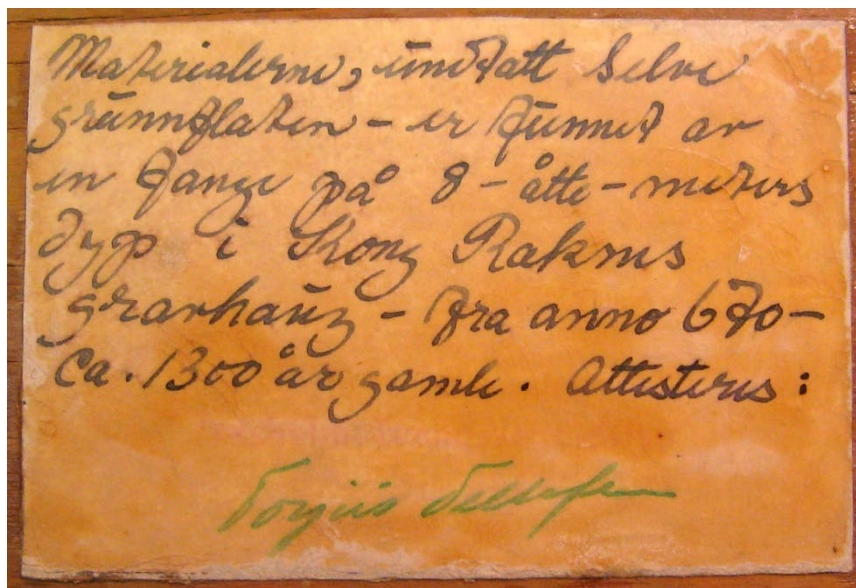 Materialerne, unntatt Selve
grunnflaten - er funnet av
en fange på 8 - åtte - meters
dyp i Kong Raknes
gravhaug - fra anno 670 -
Ca. 1300 år gamle. Attesteres: